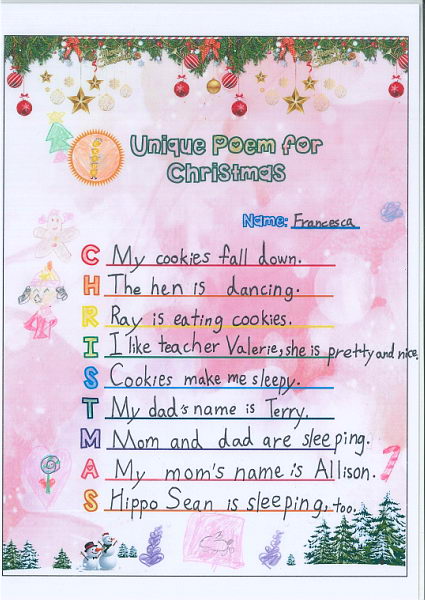 Unique Poem for
Christmas
Name: Francesca
C My cookies fall down.
H The hen is dancing.
R Ray is eating cookies.
I I like teacher Valerie, she is pretty and nice.
S Cookies make me sleepy.
T My dad's name is Terry.
M Mom and dad are sleeping.
A My mom's name is Allison.
S Hippo Sean is sleeping, too.